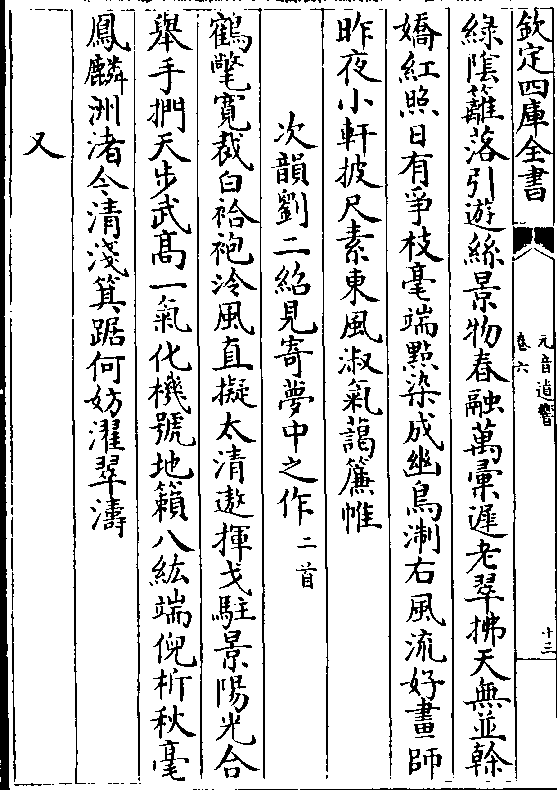 欽定四庫全書
元音遺響
卷六
十三
綠陰籬落引遊絲景物春融萬彙遲老翠拂天無並榦
嬌紅照日有爭枝毫端㸃染成幽鳥淛右風流好畫師
昨夜小軒披尺素東風淑氣藹簾帷
次韻劉二紹見寄夢中之作二首
鶴氅寛裁白袷袍泠風直擬太清遨揮戈駐景陽光合
舉手捫天步武髙一氣化機號地籟八紘端倪析秋毫
鳳麟洲渚今清淺箕踞何妨濯翠濤
又